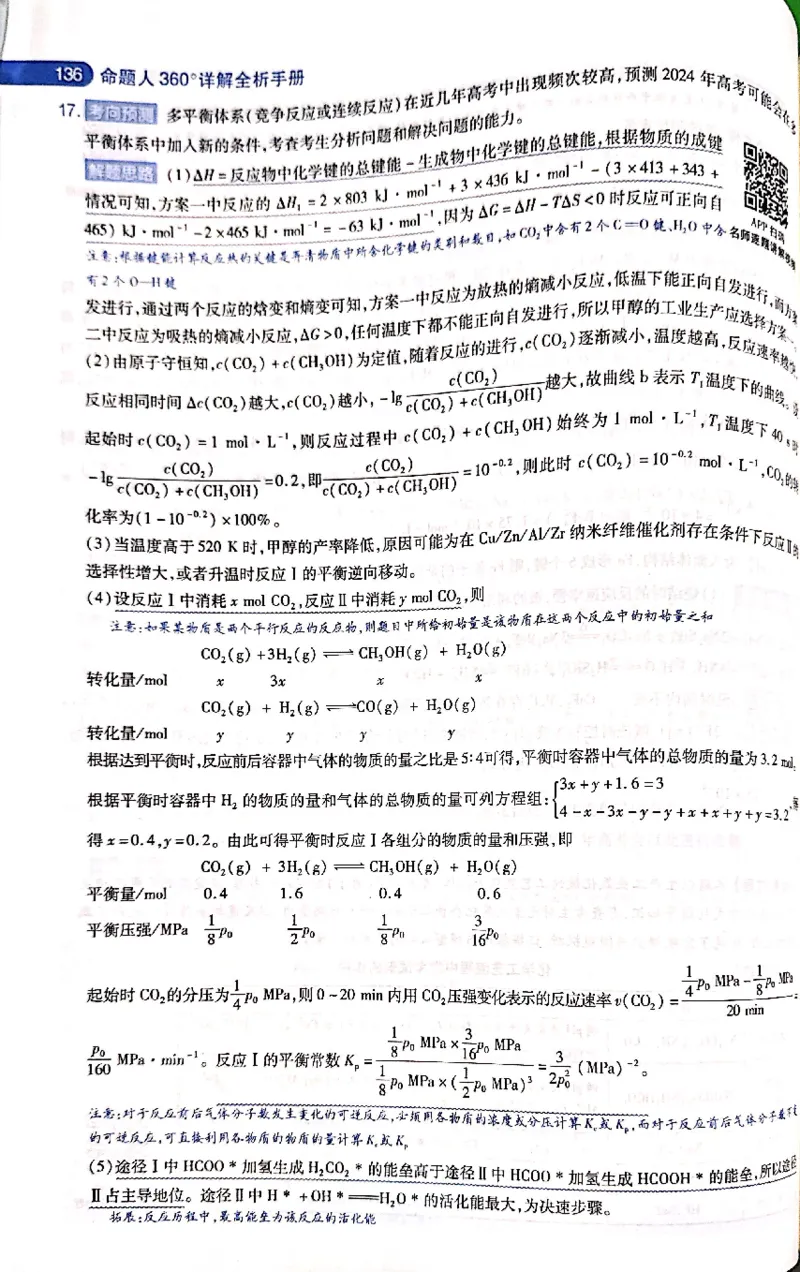 136 命题人360°详解全析手册
17. 考向预测 多平衡体系(竞争反应或连续反应)在近几年高考中出现频次较高,预测2024年高考可能会在
平衡体系中加入新的条件,考查考生分析问题和解决问题的能力。
解题思路 (1)ΔH=反应物中化学键的总键能-生成物中化学键的总键能,根据物质的成键
情况可知,方案一中反应的ΔH₁=2×803 kJ·mol⁻¹+3×436 kJ·mol⁻¹-(3×413+343+
465) kJ·mol⁻¹-2×465 kJ·mol⁻¹=-63 kJ·mol⁻¹,因为ΔG=ΔH-TΔS<0时反应可正向自
APP扫码
注意:根据键能计算反应热的关键是弄清物质中所含化学键的类别和数目,如CO₂中含有2个C=O键、H₂O中含
名师逐题讲解
有2个O—H键
发进行,通过两个反应的焓变和熵变可知,方案一中反应为放热的熵减小反应,低温下能正向自发进行,而方案
二中反应为吸热的熵减小反应,ΔG>0,任何温度下都不能正向自发进行,所以甲醇的工业生产应选择方案一。
(2)由原子守恒知,c(CO₂)+c(CH₃OH)为定值,随着反应的进行,c(CO₂)逐渐减小,温度越高,反应速率
反应相同时间Δc(CO₂)越大,c(CO₂)越小,-lg c(CO₂)/(c(CO₂)+c(CH₃OH)) 越大,故曲线b表示T₁温度下的曲线。
起始时c(CO₂)=1 mol·L⁻¹,则反应过程中c(CO₂)+c(CH₃OH)始终为1 mol·L⁻¹,T₁温度下40 s
-lg c(CO₂)/(c(CO₂)+c(CH₃OH)) =0.2,即 c(CO₂)/(c(CO₂)+c(CH₃OH)) =10⁻⁰·²,则此时c(CO₂)=10⁻⁰·² mol·L⁻¹,CO₂的
化率为(1-10⁻⁰·²)×100%。
(3)当温度高于520 K时,甲醇的产率降低,原因可能为在Cu/Zn/Al/Zr纳米纤维催化剂存在条件下反应Ⅱ的
选择性增大,或者升温时反应Ⅰ的平衡逆向移动。
(4)设反应Ⅰ中消耗x mol CO₂,反应Ⅱ中消耗y mol CO₂,则
注意:如果某物质是两个平行反应的反应物,则题目中所给初始量是该物质在这两个反应中的初始量之和
CO₂(g)+3H₂(g)⇌CH₃OH(g) + H₂O(g)
转化量/mol x 3x x x
CO₂(g) + H₂(g)⇌CO(g) + H₂O(g)
转化量/mol y y y y
根据达到平衡时,反应前后容器中气体的物质的量之比是5:4可得,平衡时容器中气体的总物质的量为3.2 mol,
根据平衡时容器中H₂的物质的量和气体的总物质的量可列方程组:{3x+y+1.6=3
4-x-3x-y-y+x+x+y+y=3.2
得x=0.4,y=0.2。由此可得平衡时反应Ⅰ各组分的物质的量和压强,即
CO₂(g) + 3H₂(g)⇌CH₃OH(g) + H₂O(g)
平衡量/mol 0.4 1.6 0.4 0.6
平衡压强/MPa 1/8p₀ 1/2p₀ 1/8p₀ 3/16p₀
起始时CO₂的分压为1/4p₀ MPa,则0~20 min内用CO₂压强变化表示的反应速率v(CO₂)=(1/4p₀ MPa-1/8p₀ MPa)/20 min
p₀/160 MPa·min⁻¹。反应Ⅰ的平衡常数Kₚ=(1/8p₀ MPa×3/16p₀ MPa)/(1/8p₀ MPa×(1/2p₀ MPa)³)=3/2p₀²(MPa)⁻²。
注意:对于反应前后气体分子数发生变化的可逆反应,必须用各物质的浓度或分压计算K_c或Kₚ,而对于反应前后气体分子数不变
的可逆反应,可直接利用各物质的物质的量计算K_c或Kₚ
(5)途径Ⅰ中HCOO*加氢生成H₂CO₂*的能垒高于途径Ⅱ中HCOO*加氢生成HCOOH*的能垒,所以途径
Ⅱ占主导地位。途径Ⅱ中H*+OH*══H₂O*的活化能最大,为决速步骤。
拓展:反应历程中,最高能垒为该反应的活化能